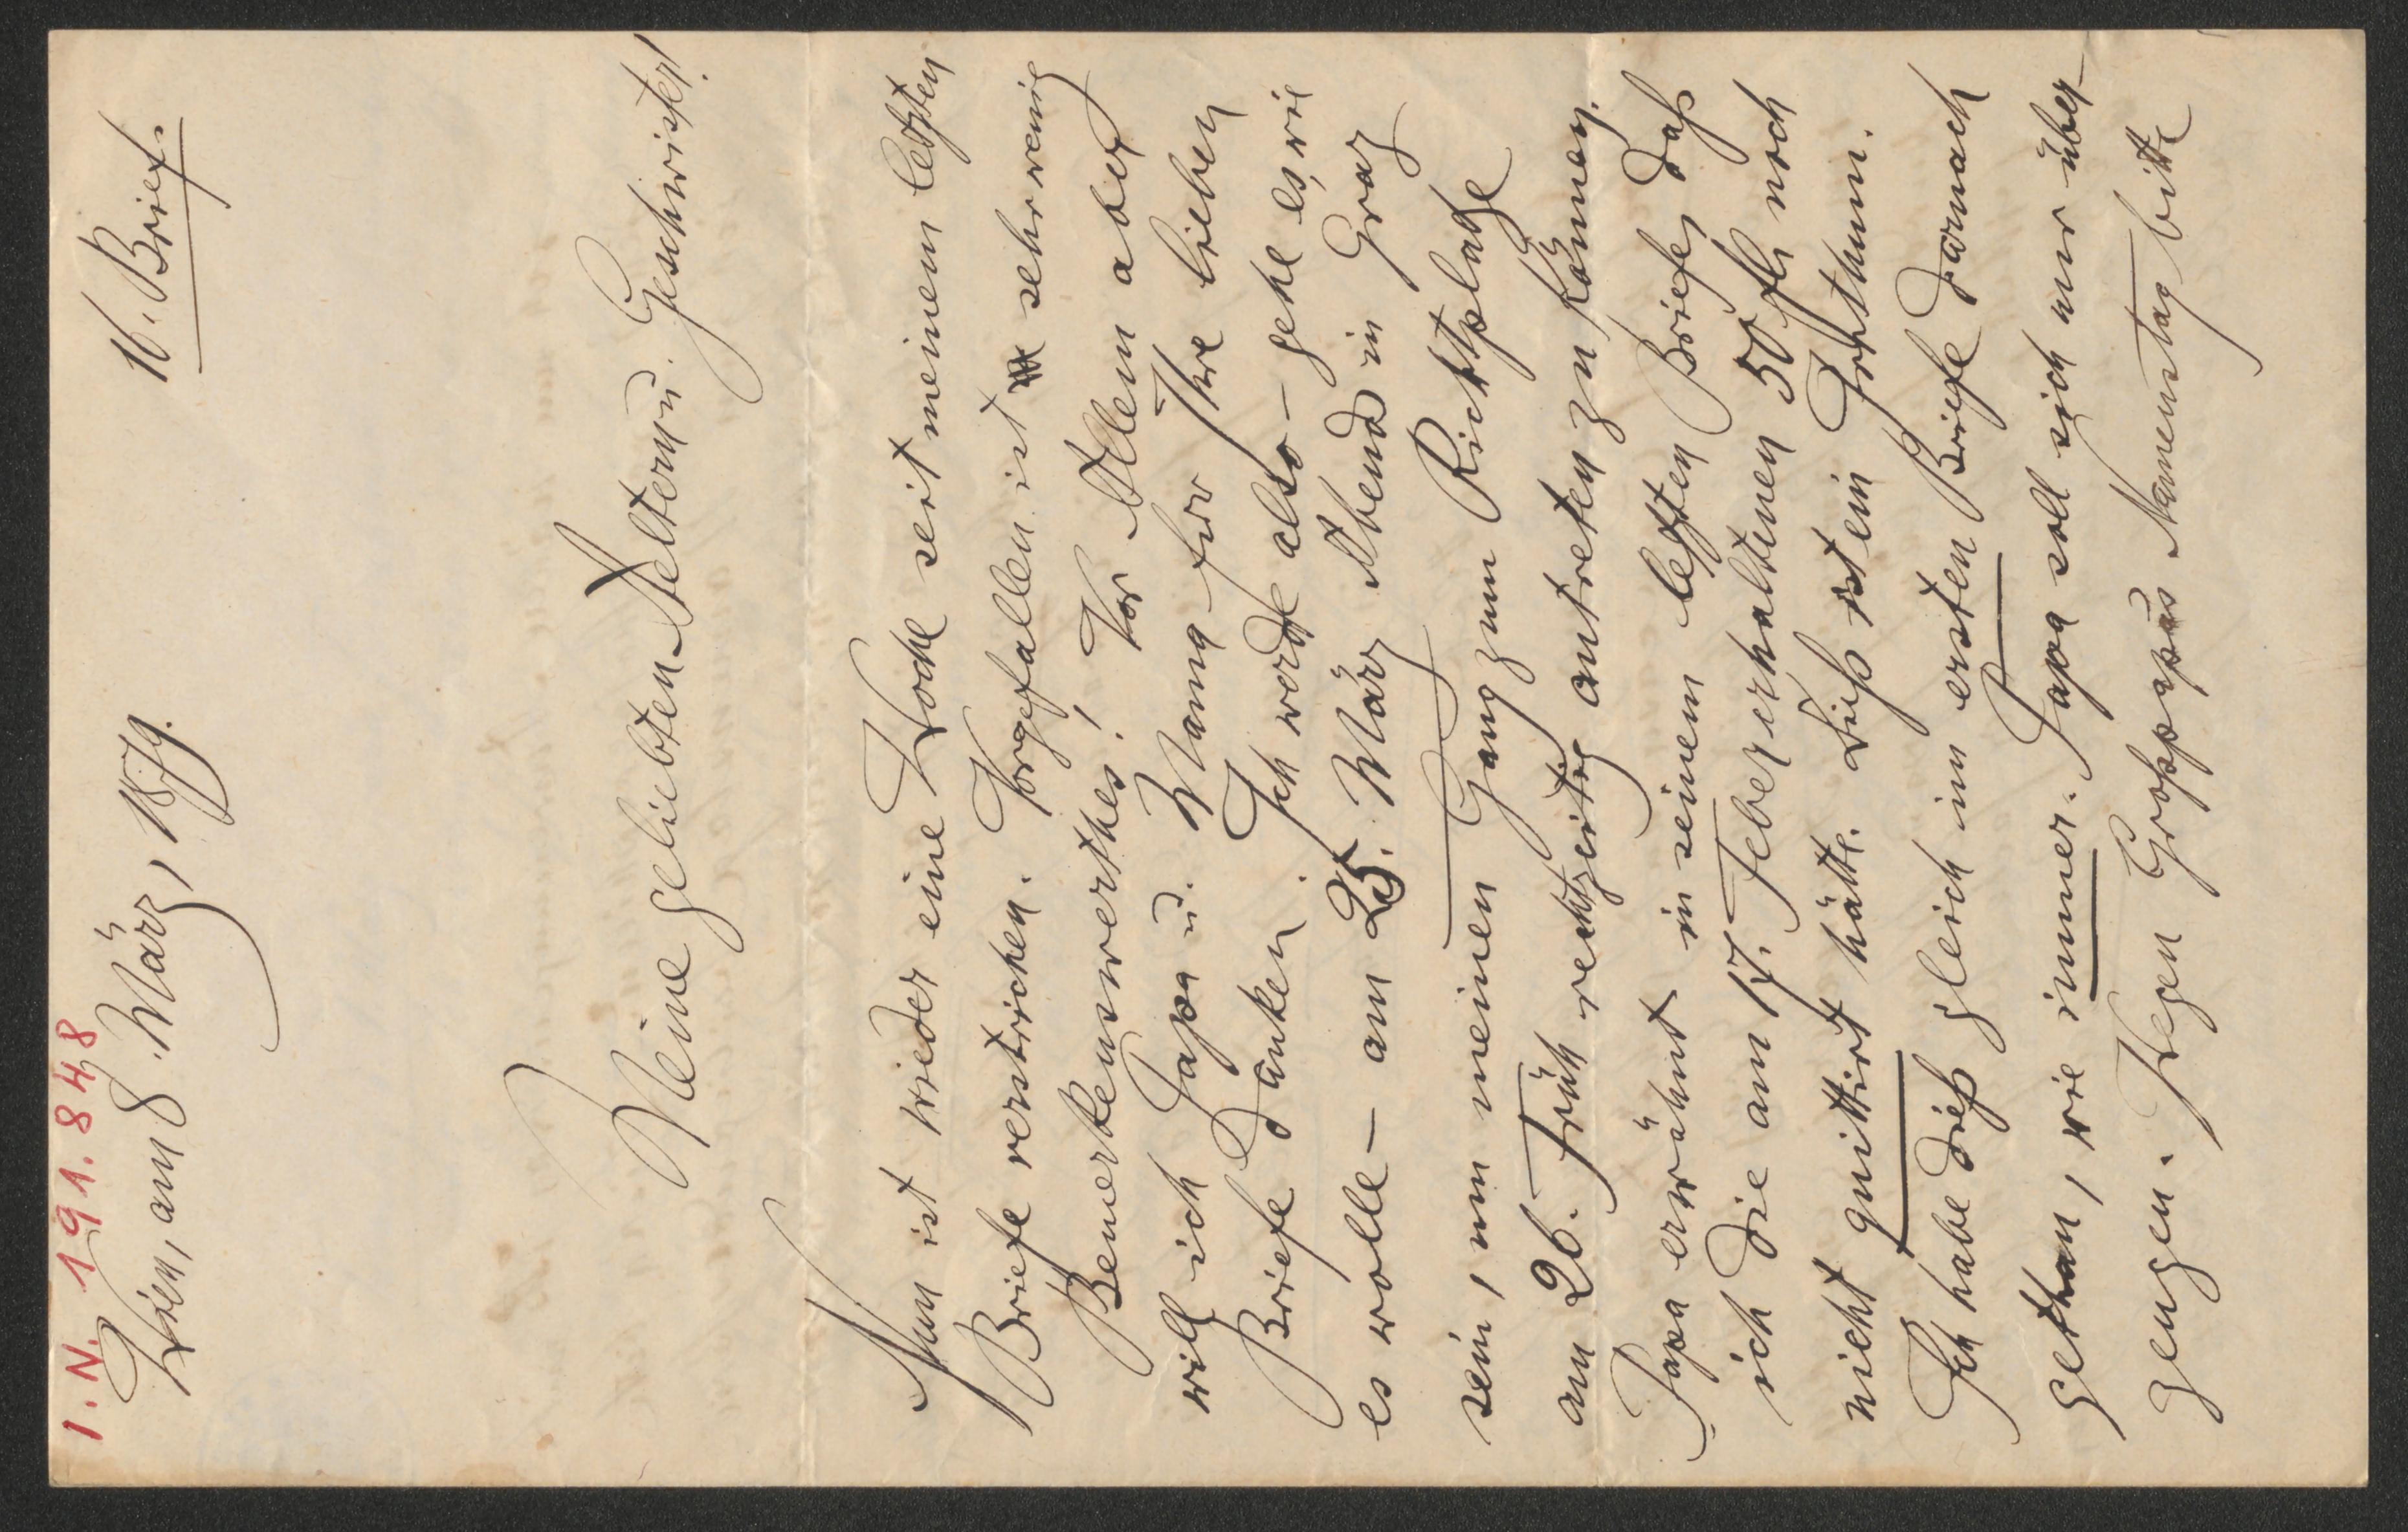 I. N. 191.848
Wien, am 8. März, 1879. 16. Brief.
Meine geliebten Aeltern u. Geschwister!
Nun ist wieder eine Woche seit meinem letzten
Briefe verstrichen. Vorgefallen ist sehr wenig
Bemerkenswerthes! Vor Allem aber
will ich Papa u. Mama für Ihre lieben
Briefe danken. Ich werde also – gehe es, wie
es wolle – am 25. März Abend in Graz
sein, um meinen Gang zum Richtplatze
am 26. Früh rechtzeitig antreten zu können.
Papa erwähnt in seinem letzten Briefe, daß
ich die am 17. Feber erhaltenen 50 fl. noch
nicht quittirt hätte. Dieß ist ein Irrthum.
Ich habe dieß gleich im ersten Briefe darnach
gethan, wie immer. Papa soll sich nur über-
zeugen. Wegen Großpapas Namenstag bitte